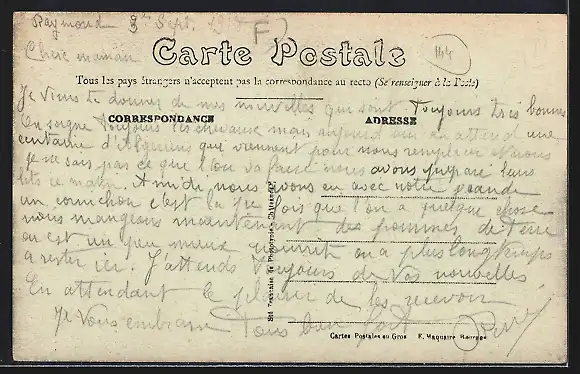 Raymond 3 Sept. 19
F
144
Chère maman
Carte Postale
Tous les pays étrangers n'acceptent pas la correspondance au recto (Se renseigner à la Poste)
Je viens te donner de mes nouvelles qui sont toujours très bonnes
CORRESPONDANCE ADRESSE
On soigne toujours les chevaux mais aujourd'hui on attend une
centaine d'Algériens qui viennent pour nous remplacer et nous
je ne sais pas ce que l'on va faire nous avons préparé leurs
lits ce matin. A midi nous avons eu avec notre viande
un cornichon c'est la 1re fois que l'on a quelque chose
nous mangeons maintenant des pommes de terre
on est un peu mieux nourrit on a plus longtemps
a rester ici. J'attends toujours de vos nouvelles
En attendant le plaisir de les recevoir
Je vous embrasse tous bien fort
Sté Française de Phototypie - Châteaudun
Cartes Postales en Gros